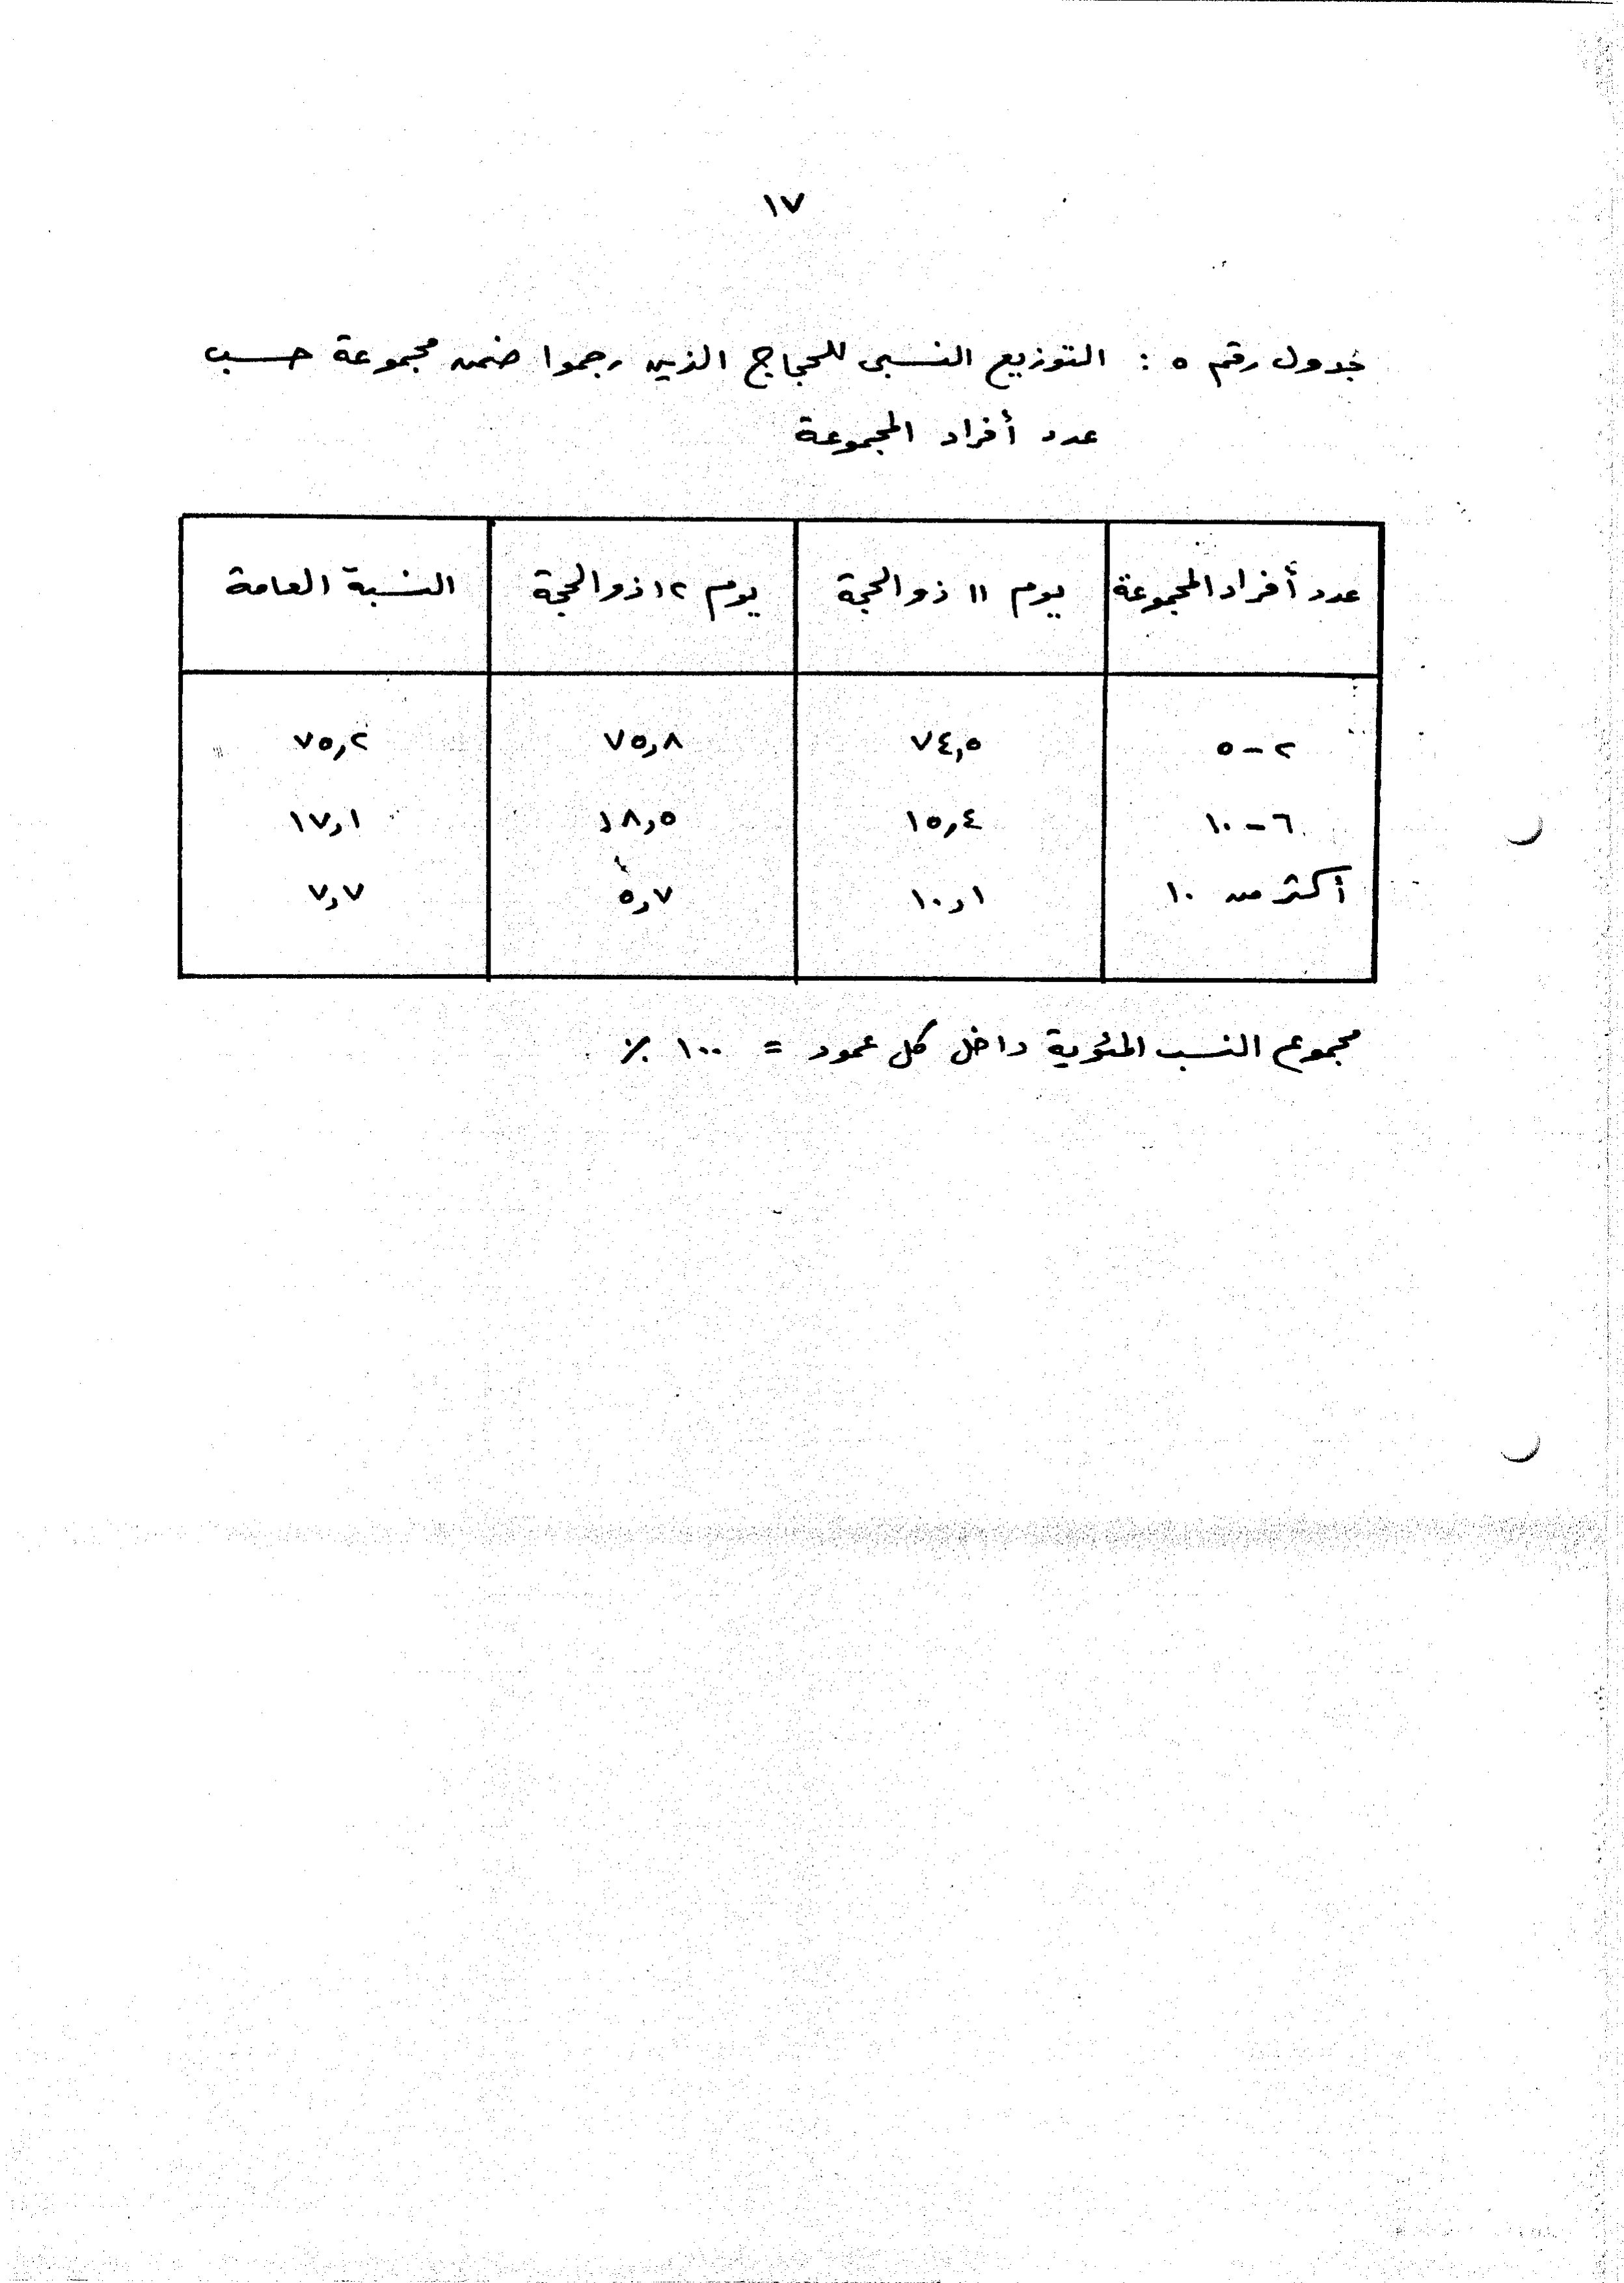 ١٧
جدول رقم ٥ : التوزيع النسبى للحجاج الذين رجموا ضمن مجموعة حسب
عدد أفراد المجموعة
عدد أفراد المجموعة يوم ١١ ذو الحجة يوم ١٢ ذو الحجة النسبة العامة
٢ – ٥ ٧٤,٥ ٧٥,٨ ٧٥,٢
٦ – ١٠ ١٥,٤ ١٨,٥ ١٧,١
أكثر من ١٠ ١٠,١ ٥,٧ ٧,٧
مجموع النسب المئوية داخل كل عمود = ١٠٠ ٪